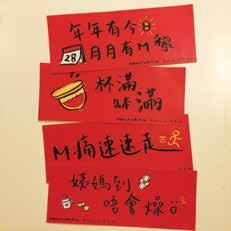 年年有今日
28
月月有M經
杯滿
缽滿
M痛速速走
姨媽到
唔會燥